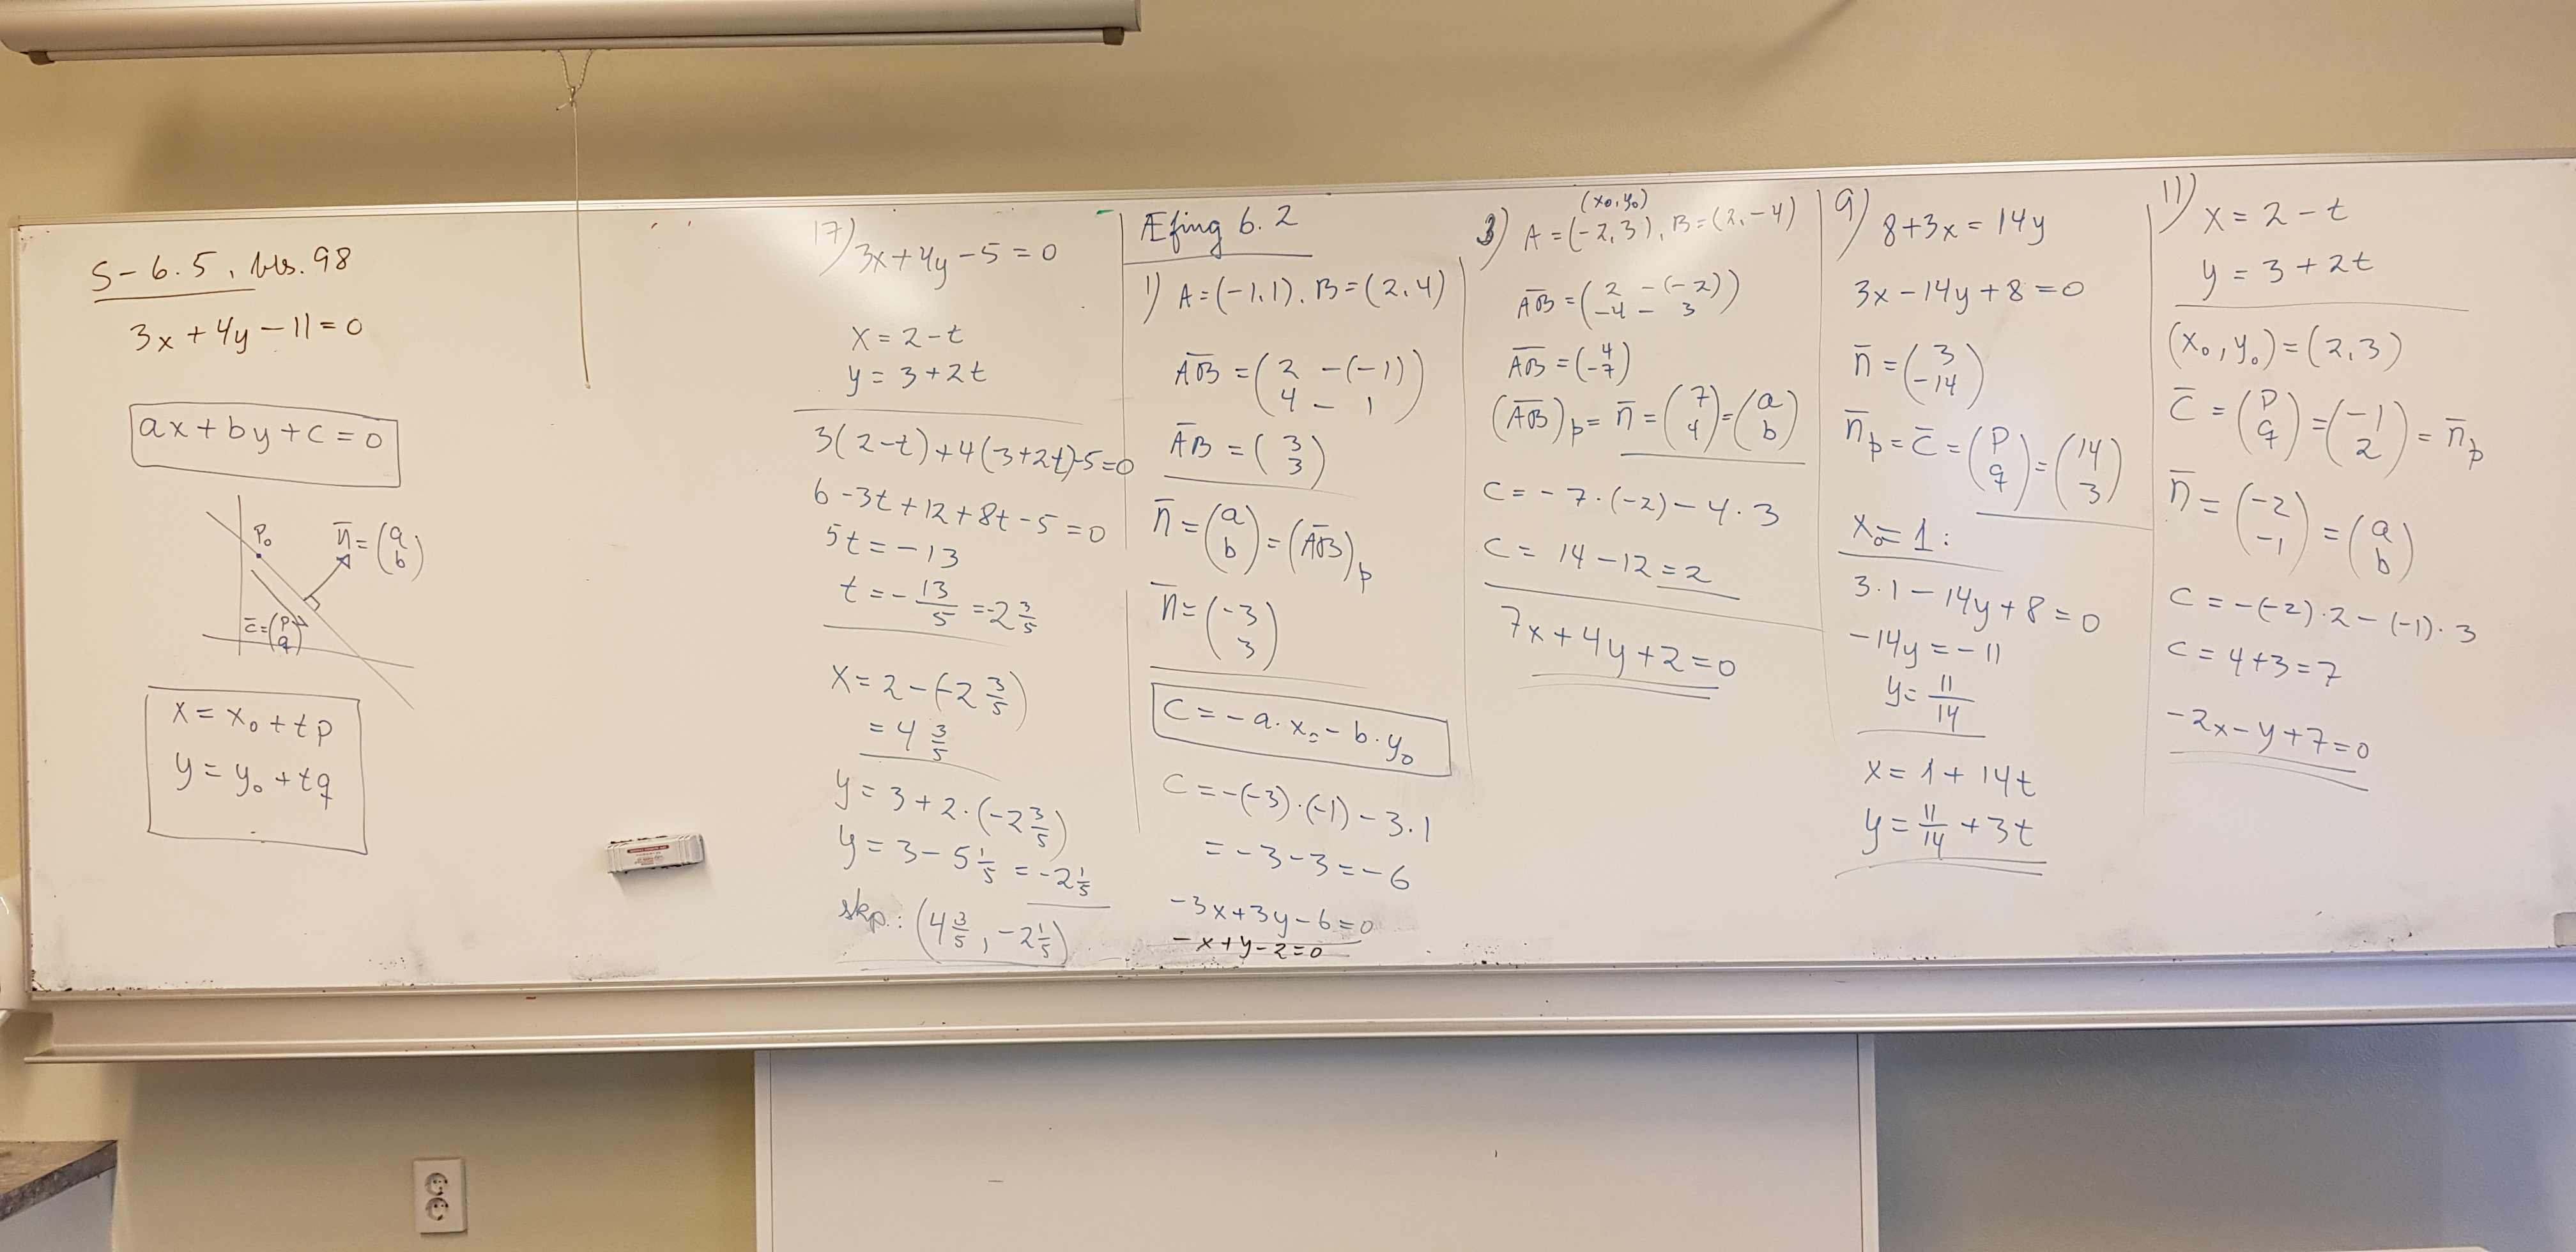 S-6.5, bls. 98
3x + 4y - 11 = 0
ax + by + c = 0
P₀
n̄ = (a b)
c̄ = (p q)
x = x₀ + tp
y = y₀ + tq
17) 3x + 4y - 5 = 0
x = 2 - t
y = 3 + 2t
3(2-t) + 4(3+2t) - 5 = 0
6 - 3t + 12 + 8t - 5 = 0
5t = -13
t = -13/5 = -2 3/5
x = 2 - (-2 3/5)
= 4 3/5
y = 3 + 2·(-2 3/5)
y = 3 - 5 1/5 = -2 1/5
skp.: (4 3/5, -2 1/5)
Æfing 6.2
1) A = (-1,1), B = (2,4)
A̅B̅ = (2 - (-1) 4 - 1)
A̅B̅ = (3 3)
n̄ = (a b) = (A̅B̅)þ
n̄ = (-3 3)
C = -a·x₀ - b·y₀
C = -(-3)·(-1) - 3·1
= -3 - 3 = -6
-3x + 3y - 6 = 0
-x + y - 2 = 0
(x₀, y₀)
3) A = (-2,3), B = (2,-4)
A̅B̅ = (2 - (-2) -4 - 3)
A̅B̅ = (4 -7)
(A̅B̅)þ = n̄ = (7 4) = (a b)
C = -7·(-2) - 4·3
C = 14 - 12 = 2
7x + 4y + 2 = 0
9) 8 + 3x = 14y
3x - 14y + 8 = 0
n̄ = (3 -14)
n̄þ = c̄ = (p q) = (14 3)
x₀ = 1:
3·1 - 14y + 8 = 0
-14y = -11
y = 11/14
x = 1 + 14t
y = 11/14 + 3t
11) x = 2 - t
y = 3 + 2t
(x₀, y₀) = (2,3)
c̄ = (p q) = (-1 2) = n̄þ
n̄ = (-2 -1) = (a b)
C = -(-2)·2 - (-1)·3
C = 4 + 3 = 7
-2x - y + 7 = 0